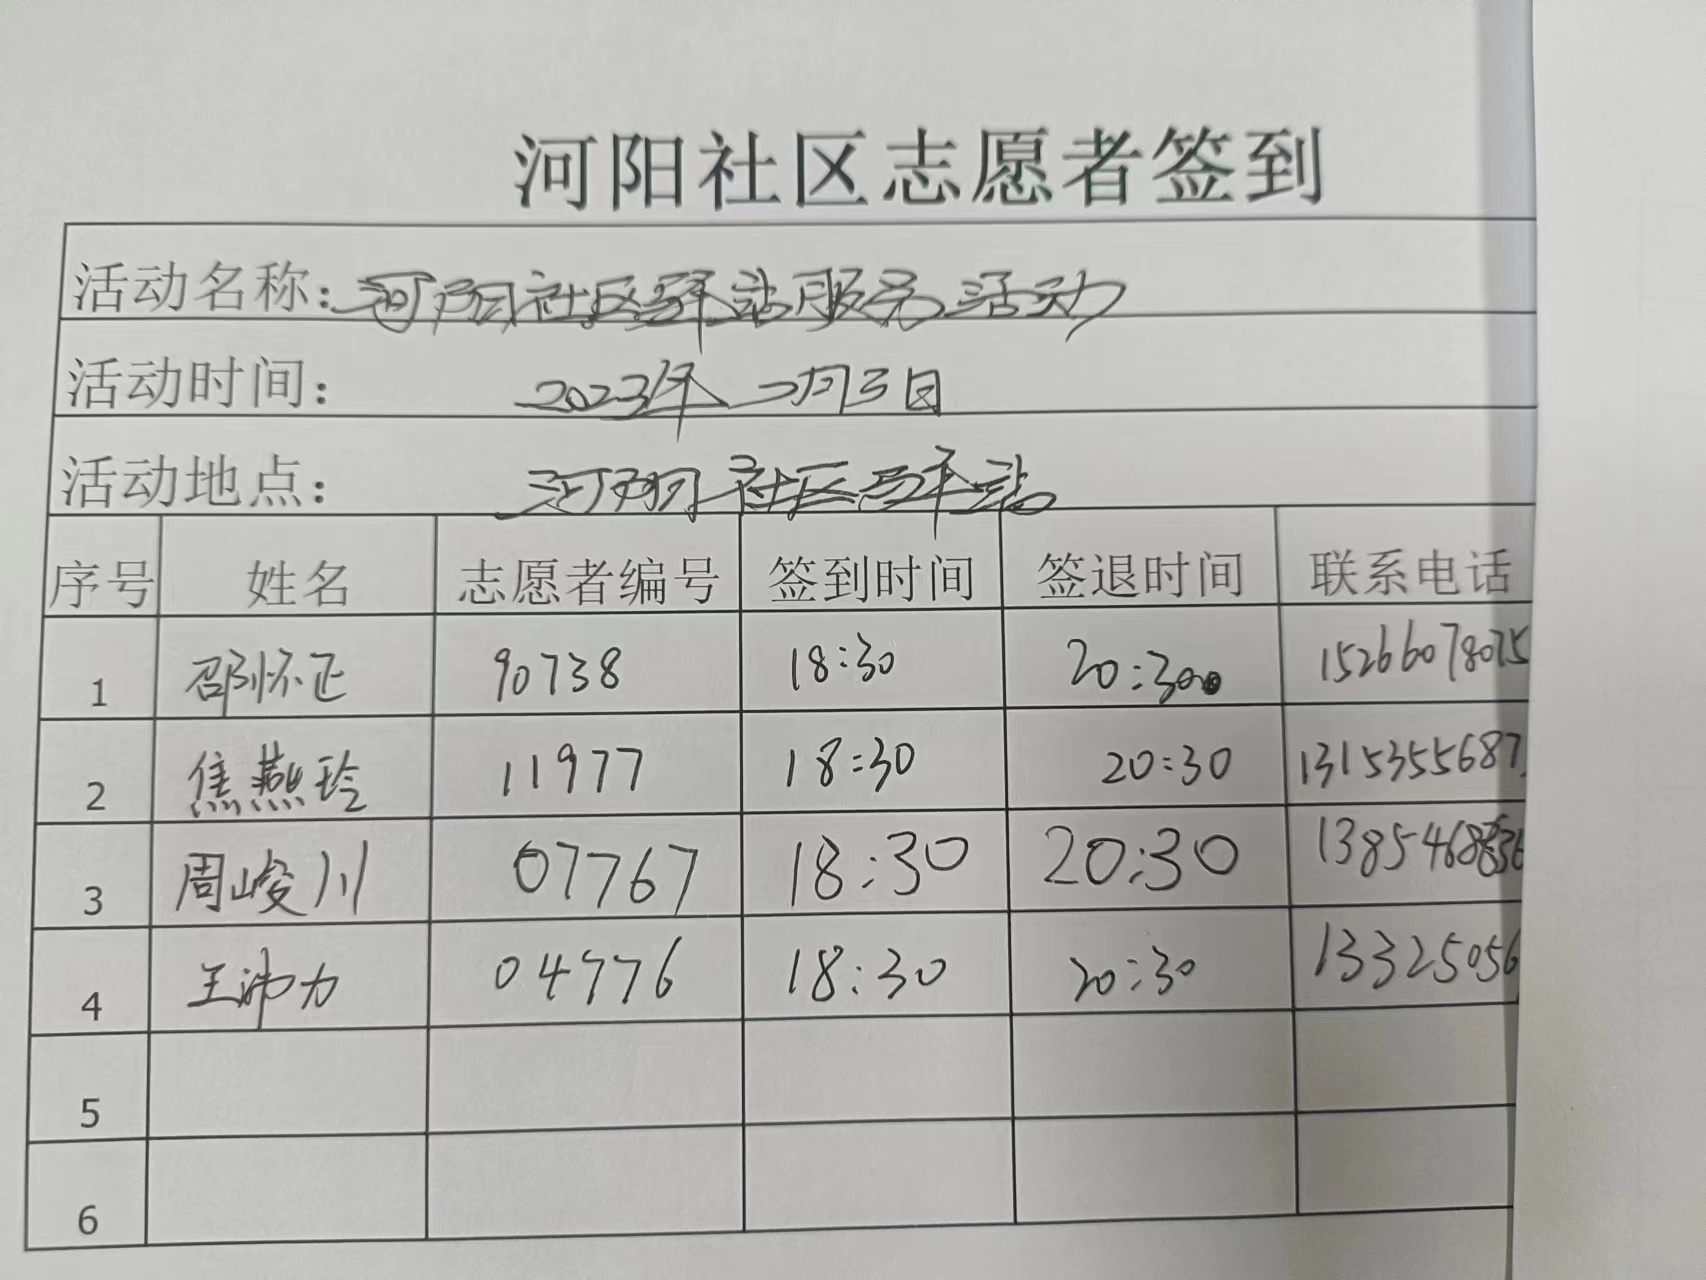 河阳社区志愿者签到
活动名称：河阳社区驿站服务活动
活动时间： 2023年二月三日
活动地点： 河阳社区驿站
序号 姓名 志愿者编号 签到时间 签退时间 联系电话
1 邵怀正 90738 18:30 20:30 15266078075
2 焦燕玲 11977 18:30 20:30 1315355687
3 周峻川 07767 18:30 20:30
4 王沛力 04776 18:30 20:30 13325056
5
6